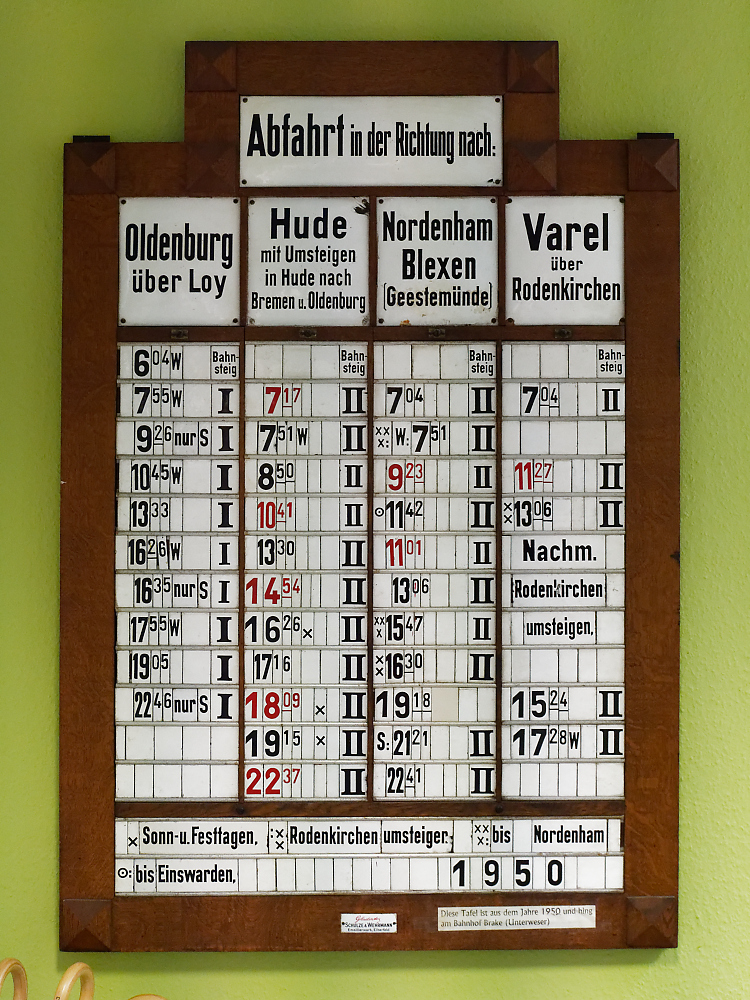 Abfahrt in der Richtung nach:
Oldenburg
über Loy
Hude
mit Umsteigen
in Hude nach
Bremen u. Oldenburg
Nordenham
Blexen
(Geestemünde)
Varel
über
Rodenkirchen
6 04 W Bahn-steig
7 55 W I
9 26 nur S I
10 45 W I
13 33 I
16 26 W I
16 35 nur S I
17 55 W I
19 05 I
22 46 nur S I
Bahn-steig
7 17 II
7 51 W II
8 50 II
10 41 II
13 30 II
14 54 II
16 26 × II
17 16 II
18 09 × II
19 15 × II
22 37 II
Bahn-steig
7 04 II
×× ×: W: 7 51 II
9 23 II
⊙ 11 42 II
11 01 II
13 06 II
×× × 15 47 II
×× 16 30 II
19 18
S: 21 21 II
22 41 II
Bahn-steig
7 04 II
11 27 II
×× 13 06 II
Nachm.
Rodenkirchen
umsteigen,
15 24 II
17 28 W II
× Sonn-u. Festtagen, :×× Rodenkirchen umsteigen. ×× ×: bis Nordenham
⊙: bis Einswarden, 1950
SCHULZE & WEHRMANN
Emaillierwerk, Elberfeld
Diese Tafel ist aus dem Jahre 1950 und hing
am Bahnhof Brake (Unterweser)